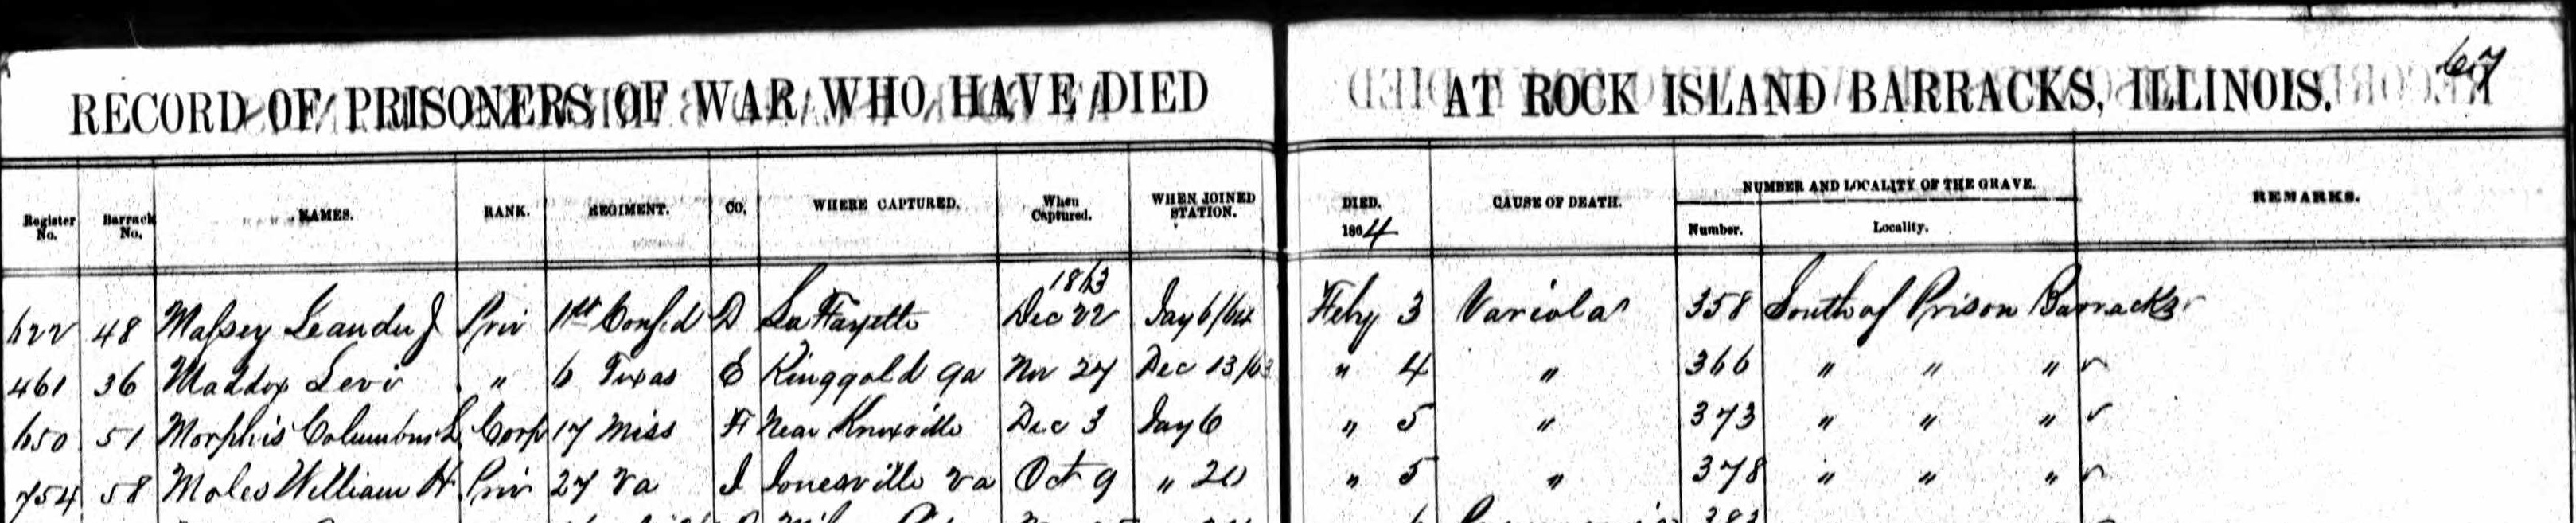 67
RECORD OF PRISONERS OF WAR WHO HAVE DIED AT ROCK ISLAND BARRACKS, ILLINOIS.
Register No. Barrack No. NAMES. RANK. REGIMENT. CO. WHERE CAPTURED. When Captured. WHEN JOINED STATION. DIED. 1864 CAUSE OF DEATH. NUMBER AND LOCALITY OF THE GRAVE. Number. Locality. REMARKS.
1863
622 48 Massey Leander J Priv 1st Confed D La Fayette Dec 22 Jay 6/64 Feby 3 Variola 358 South of Prison Barracks
461 36 Maddox Levi " 6 Texas E Ringgold Ga Nov 27 Dec 13/63 " 4 " 366 " " " ✓
650 51 Morphis Columbus L Corp 17 Miss F Near Knoxville Dec 3 Jay 6 " 5 " 373 " " " ✓
754 58 Moles William H Priv 27 Va I Jonesville Va Oct 9 " 20 " 5 " 378 " " " ✓